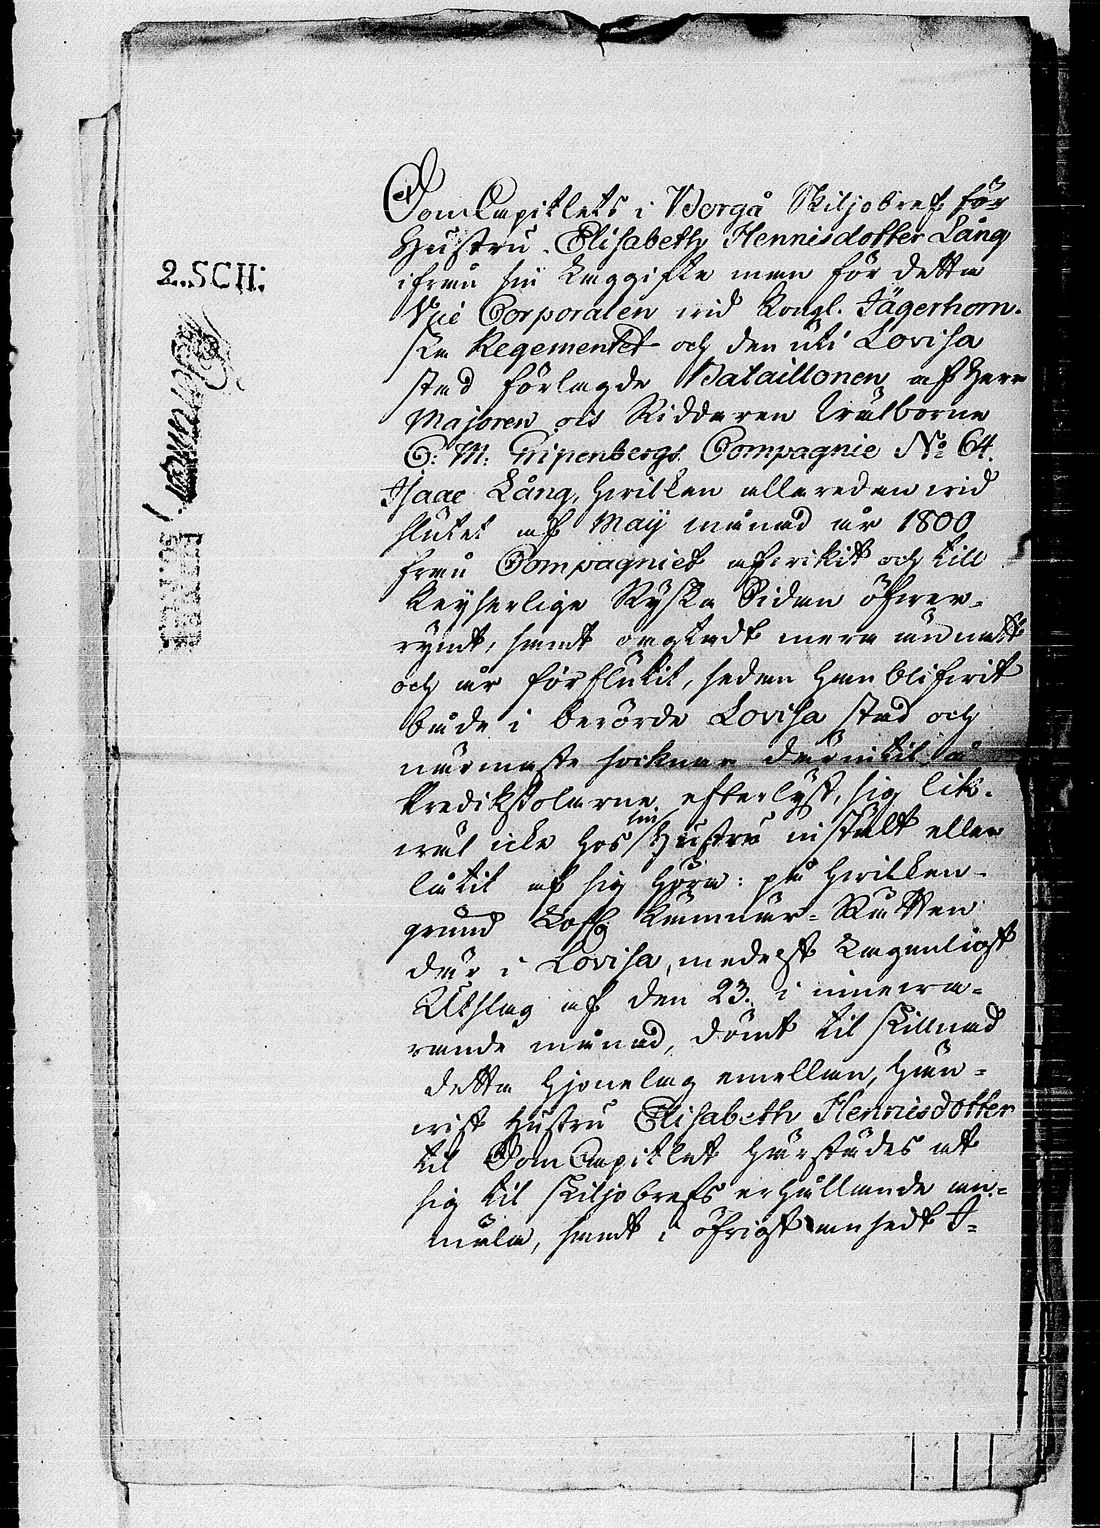 DomCapitlets i Borgå Skiljobref för
Hustru Elisabeth Hennisdotter Lång
ifrån sin Laggifte man för detta
Vice Corporalen vid Kongl. Jägerhorn-
ska Regementet och den uti Lovisa
stad förlagde Bataillonen af Herr
Majoren och Ridderen Wälborne
C: M: Gripenbergs Compagnie No 64.
Isaac Lång, hvilken allaredan vid
slutet af Maij månad år 1800
från Compagniet afvikit och till
Keyserlige Ryska Sidan öfver-
rymt, samt ongefär mera än natt
och år förflutit, sedan han blifvit
både i berörde Lovisa stad och
närmaste socknar därintil å
Predikstolarne efterlyst, sig lik-
väl icke hos sin Hustru instält eller
låtit af sig höra: på hvilken
grund Lofl. Kämnärs-Rätten
där i Lovisa, medelst Lagenligt
Utslag af den 23. i innewa-
rande månad, dömt til skillnad
detta Hjonelag emellan, Hän-
vist Hustru Elisabeth Hennisdotter
til DomCapitlet härstädes at
sig til skiljobrefs erhållande an-
mäla, samt i öfrigt ansedt I-
2. SCH: